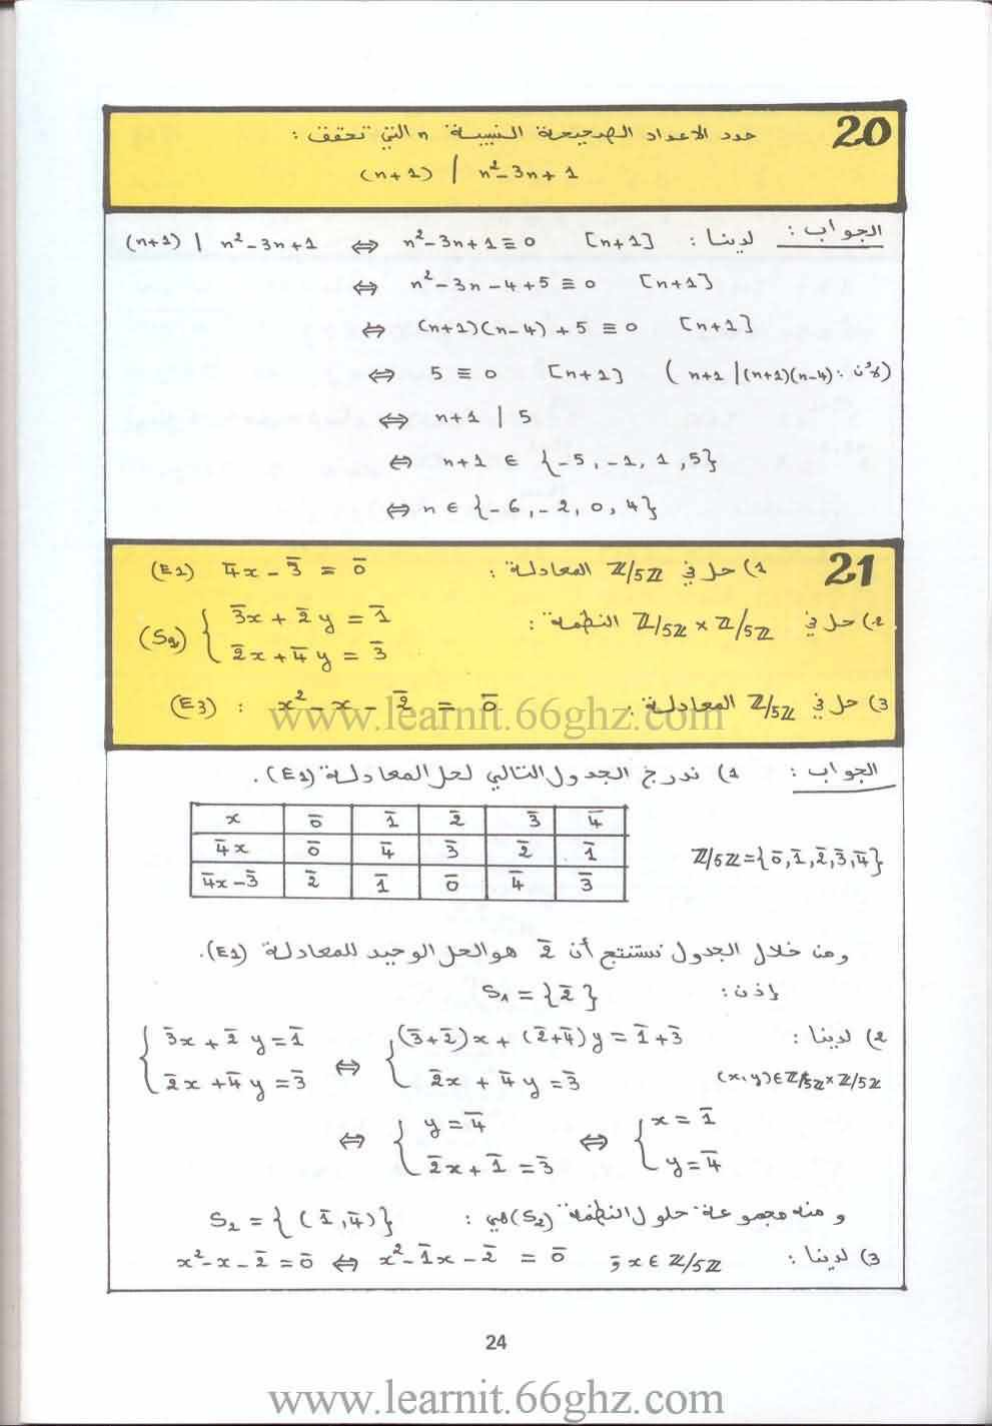 20 حدد الاعداد الصحيحة النسبية n التي تحقق :
(n+1) | n²-3n+1
الجواب : لدينا : (n+1) | n²-3n+1 ⇔ n²-3n+1≡0 [n+1]
⇔ n²-3n-4+5≡0 [n+1]
⇔ (n+1)(n-4)+5≡0 [n+1]
⇔ 5≡0 [n+1] (لأن : n+1 |(n+1)(n-4))
⇔ n+1 | 5
⇔ n+1 ∈ {-5,-1,1,5}
⇔ n ∈ {-6,-2,0,4}
21 1) حل في ℤ/5ℤ المعادلة : (E1) 4̄x-3̄=0̄
2) حل في ℤ/5ℤ×ℤ/5ℤ النظمة : (S2) { 3̄x+2̄y=1̄
2̄x+4̄y=3̄
3) حل في ℤ/5ℤ المعادلة : (E3) : x²-x-2̄=0̄
www.learnit.66ghz.com
الجواب : 1) ندرج الجدول التالي لحل المعادلة (E1).
x 0̄ 1̄ 2̄ 3̄ 4̄
4̄x 0̄ 4̄ 3̄ 2̄ 1̄
4̄x-3̄ 2̄ 1̄ 0̄ 4̄ 3̄
ℤ/5ℤ={0̄,1̄,2̄,3̄,4̄}
ومن خلال الجدول نستنتج أن 2̄ هو الحل الوحيد للمعادلة (E1).
إذن : S₁={2̄}
2) لدينا : { 3̄x+2̄y=1̄ ⇔ { (3̄+2̄)x+(2̄+4̄)y=1̄+3̄
2̄x+4̄y=3̄ 2̄x+4̄y=3̄ (x,y)∈ℤ/5ℤ×ℤ/5ℤ
⇔ { y=4̄ ⇔ { x=1̄
2̄x+1̄=3̄ y=4̄
و منه مجموعة حلول النظمة (S2) هي : S₂={(1̄,4̄)}
3) لدينا : x²-x-2̄=0̄ ⇔ x²-1̄x-2̄=0̄ ; x∈ℤ/5ℤ
24
www.learnit.66ghz.com